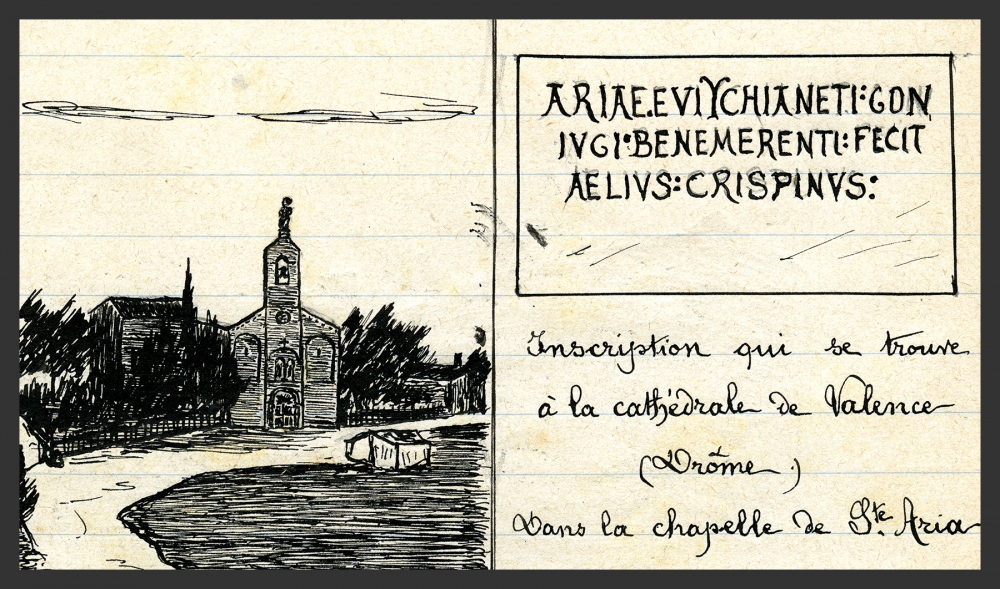 ARIAE.EVTYCHIANETI:CON
IVGI:BENEMERENTI:FECIT
AELIVS:CRISPINVS:
Inscription qui se trouve
à la cathédrale de Valence
(Drôme)
Dans la chapelle de Ste Aria